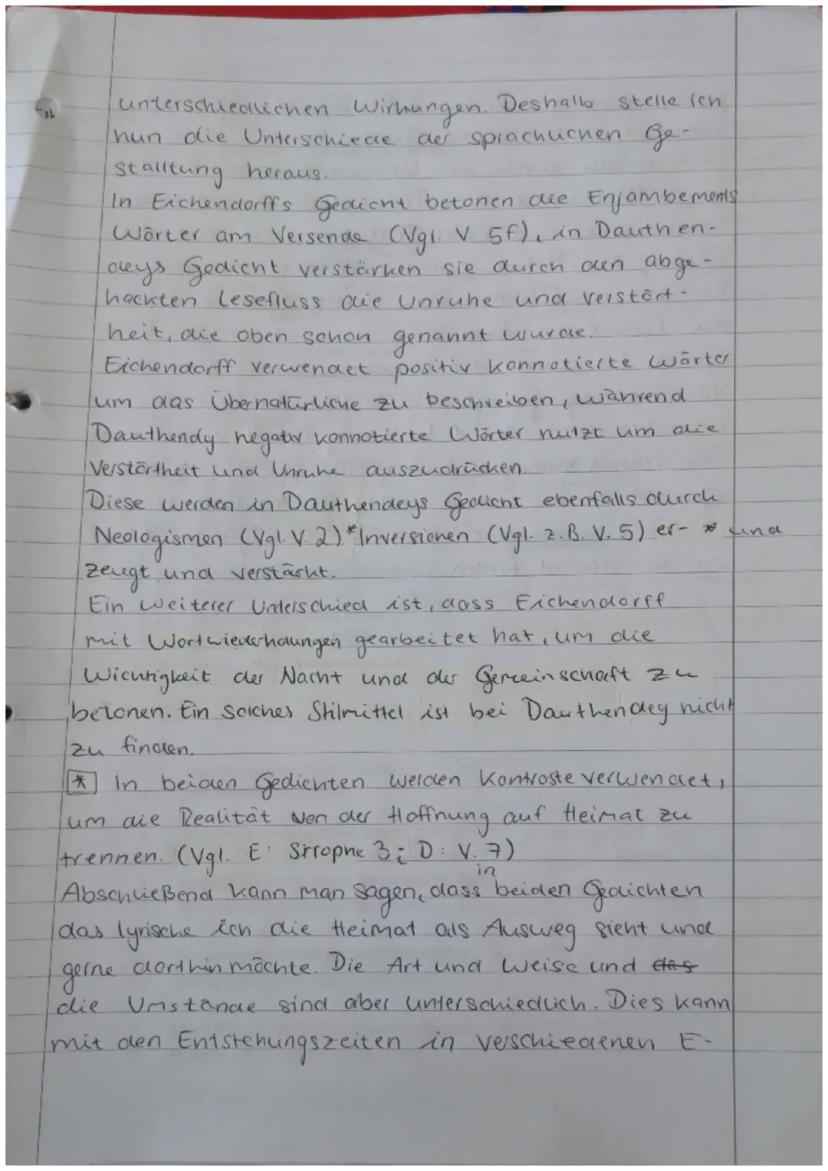 unterschiedlichen Wirkungen. Deshalb stelle ich
nun die Unterschiede der sprachlichen Ge-
stalltung heraus.
In Eichendorffs Gedicht betonen die Enjambements
Wörter am Versende (Vgl. V. 5f), in Dauthen-
deys Gedicht verstärken sie durch den abge-
hackten Lesefluss die Unruhe und Verstört-
heit, die oben schon genannt wurde.
Eichendorff verwendet positiv konnotierte Wörter
um das Übernatürliche zu beschreiben, während
Dauthendy negativ konnotierte Wörter nutzt um die
Verstörtheit und Unruhe auszudrücken.
Diese werden in Dauthendeys Gedicht ebenfalls durch
Neologismen (Vgl. V. 2)* Inversionen (Vgl. z.B. V. 5) er- * und
zeugt und verstärkt.
Ein weiterer Unterschied ist, dass Eichendorff
mit Wortwiederholungen gearbeitet hat, um die
Wichtigkeit der Nacht und der Gemeinschaft zu
betonen. Ein solches Stilmittel ist bei Dauthendey nicht
zu finden.
* In beiden Gedichten werden Kontraste verwendet,
um die Realität von der Hoffnung auf Heimat zu
trennen. (Vgl. E: Strophe 3; D: V. 7)
in
Abschließend kann man sagen, dass beiden Gedichten
das lyrische Ich die Heimat als Ausweg sieht und
gerne dorthin möchte. Die Art und Weise und das
die Umstände sind aber unterschiedlich. Dies kann
mit den Entstehungszeiten in verschiedenen E-